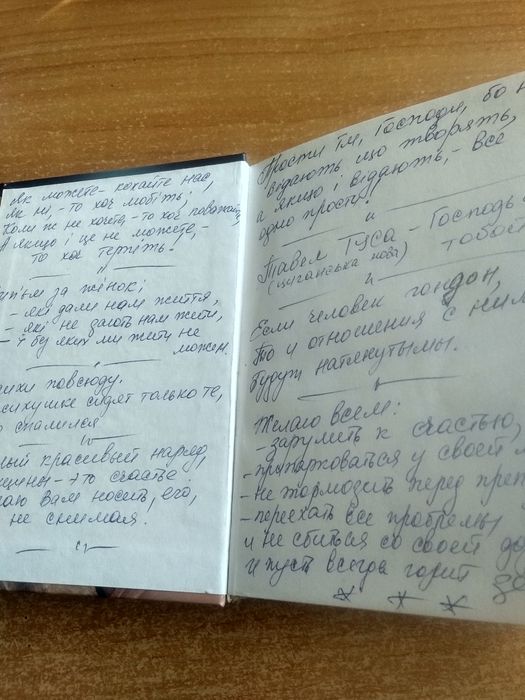 Як можете - кохайте нас,
Як ні, - то хоч любіть,
Коли ж не хочете, - то хоч поважайте,
А якщо і це не можете, -
то хоч терпіть.
за жінок:
- які дали нам життя,
- які не дають нам жити,
- і без яких ми жити не
можем.
повсюду.
сидят только те,
спалился
красивый наряд,
- это счастье.
Вам носить его,
не снимая.
Прости їм, Господи, бо н
відають що творять,
а якщо і відають, - все
одно прости!
Тавел Туса - Господь
(циганська мова) тобо
Если человек гондон,
То и отношения с ним
будут натянутыми.
Желаю всем:
- зарулить к счастью,
- припарковаться у своей м
- не тормозить перед преп
- переехать все проблемы,
и не сбиться со своей до
И пусть всегда горит